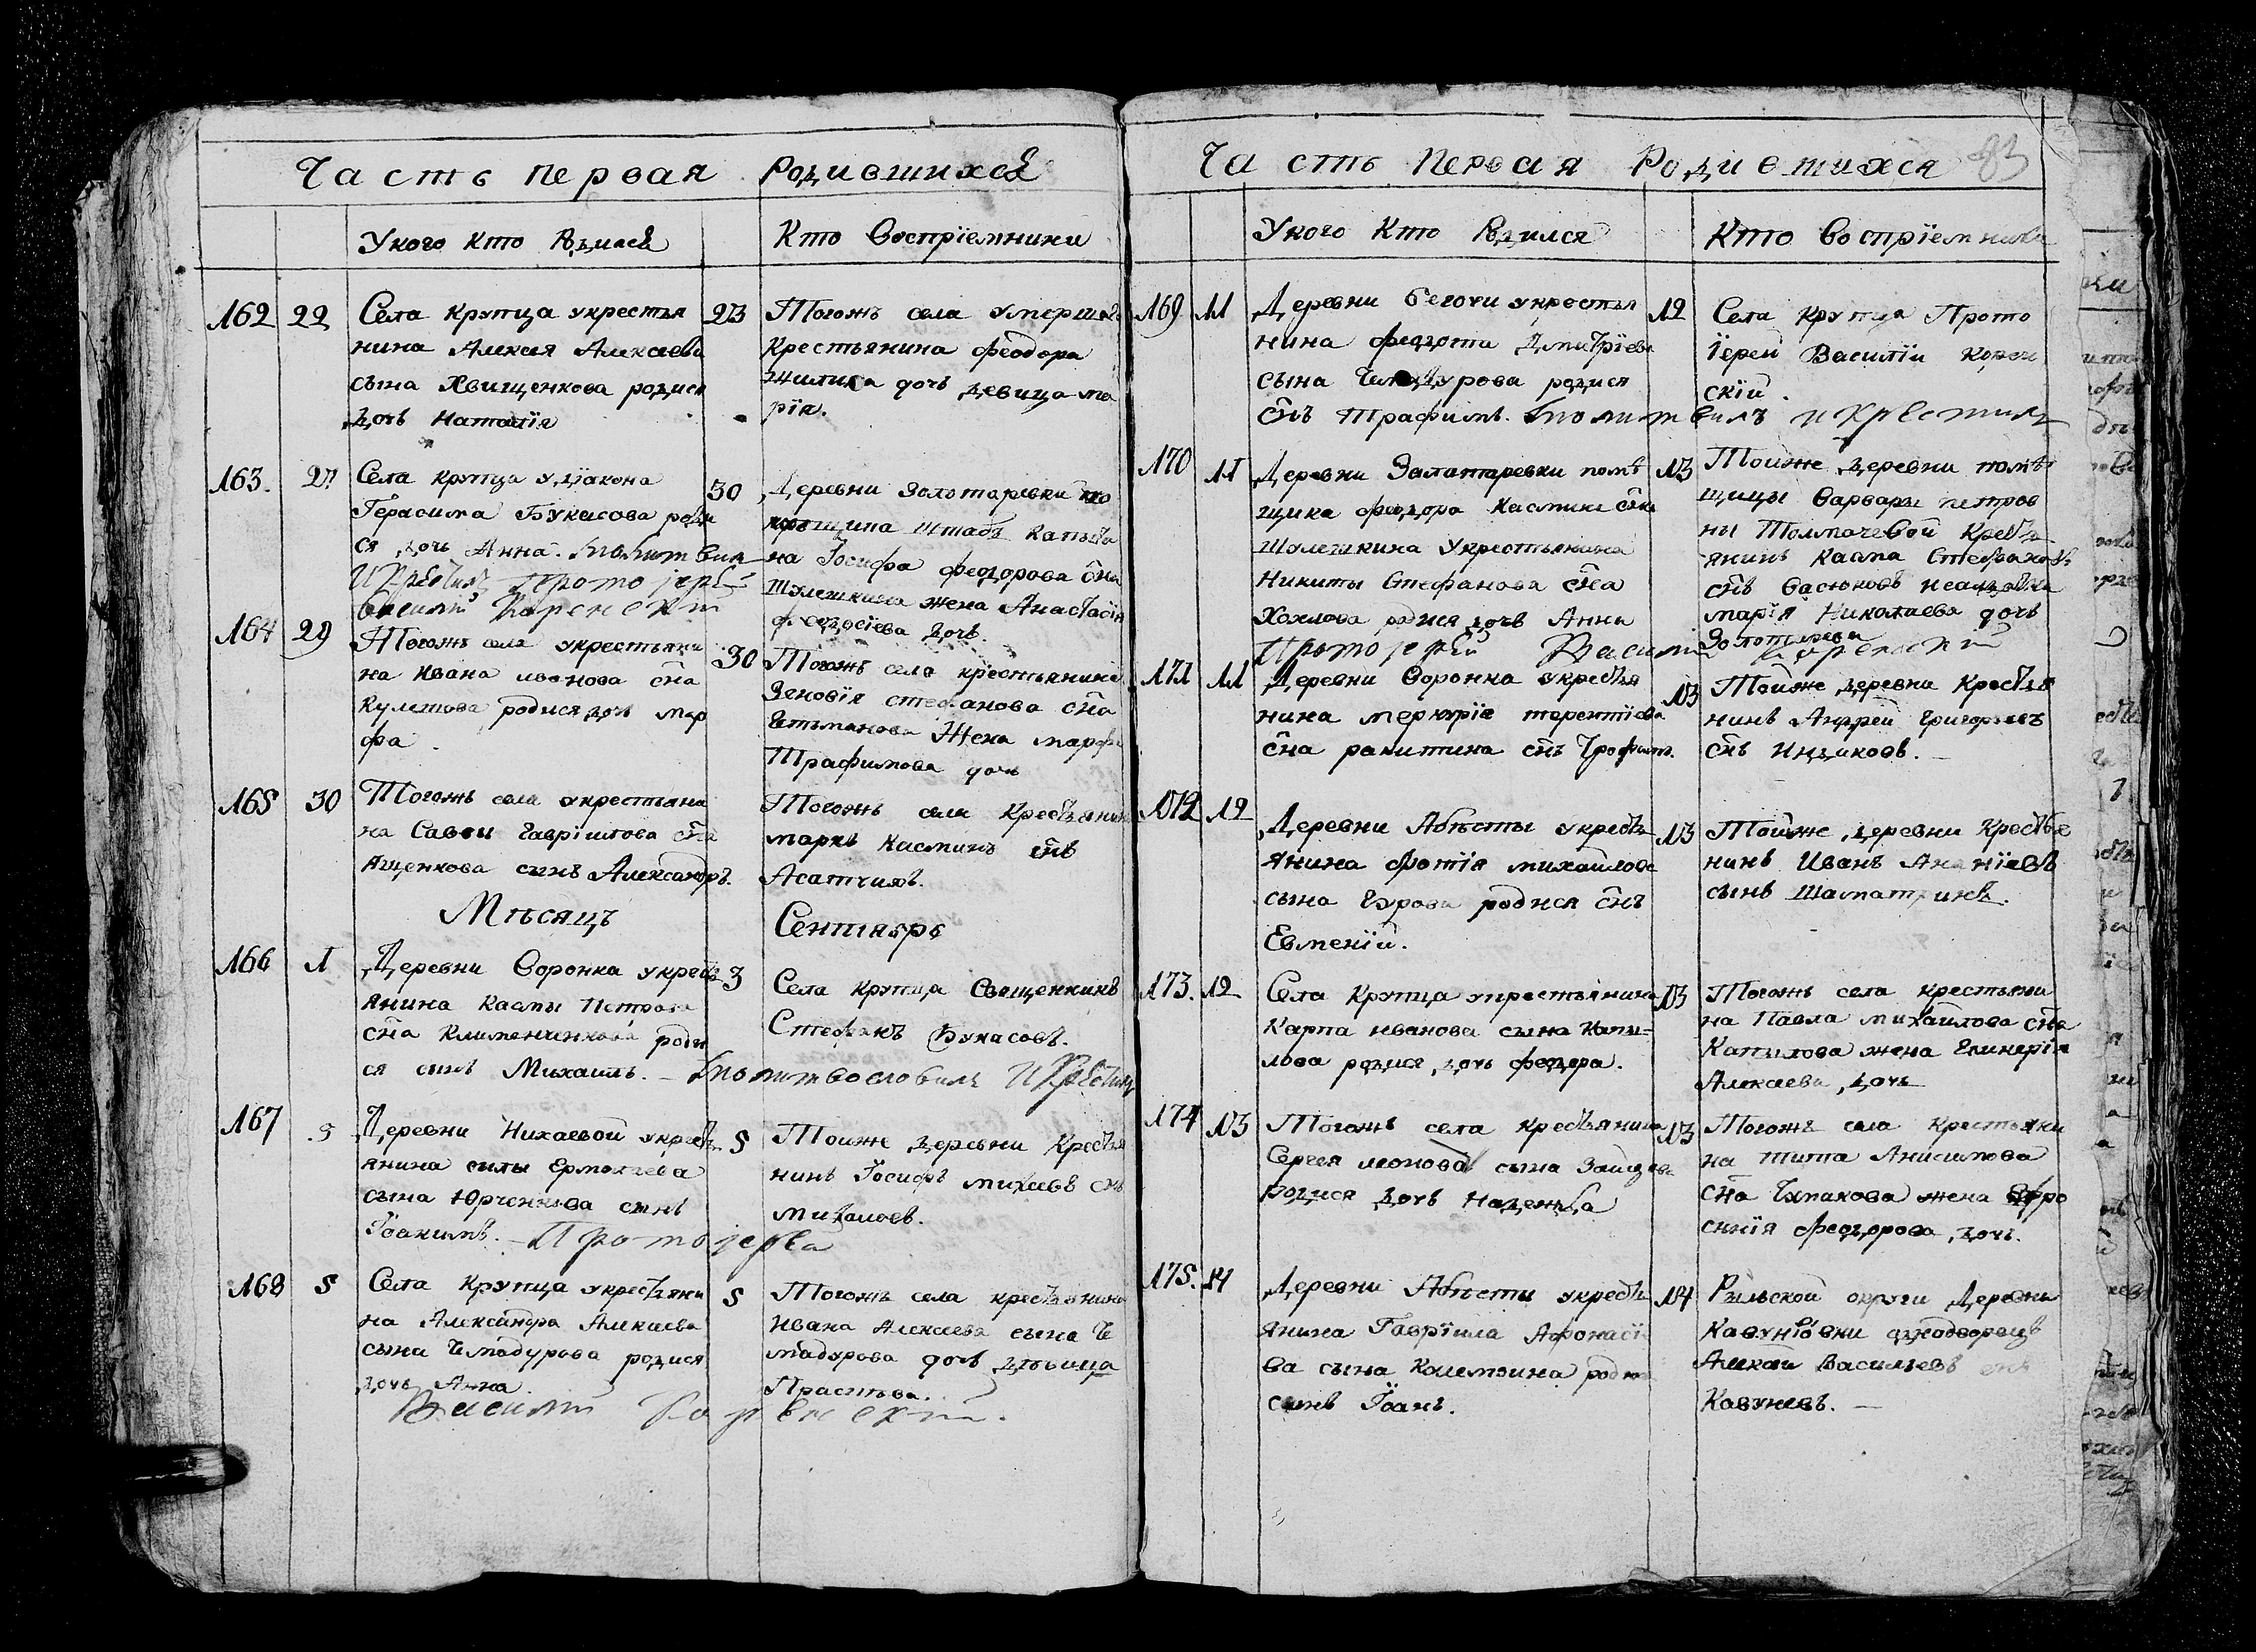 Часть первая Родившихся
У кого кто Родился
Кто Воспріемники
162 22 Села Крупца укрестья 23
нина Алексея Алексеева
сына Хвищенкова родися
дочь Наталія
Тогожъ села умершаго
Крестьянина Феодора
Жилина дочь девица Ма
рія.
163. 27 Села Крупца у діакона 30
Герасима Букасова роди
ся дочь Анна. молитвил
и крестилъ протоіерей
Василій Коренскій
Деревни Золотаревки по
мещика штабъ капита
на Іосифа Феодорова сна
Шулешкина жена Анастасія
Феодосіева дочь.
164 29 Тогожъ села укрестьяни 30
на Ивана Иванова сна
Кулешова родися дочь Мар
фа.
Тогожъ села крестьянина
Зеновія Стефанова сна
Гетманова жена Марфа
Трафимова дочь
165 30 Тогожъ села укрестьяни
на Савы Гавріилова сна
Ященкова сынъ Александръ.
Тогожъ села Крестьянинъ
Маркъ Касминъ снъ
Асатчихъ.
Мѣсяцъ Сентябрь
166 1 Деревни Воронка укресть 3
янина Касмы Петрова
сна Клименченкова роди
ся сынъ Михаилъ. – молитвословилъ и крестилъ
Села Крупца Священникъ
Стефанъ Букасовъ.
167 5 Деревни Нихаевой укресть 5
янина Силы Ермолаева
сына Юрченкова сынъ
Іоакимъ. – Протоіерей
Тойже деревни Крестья
нинъ Іосифъ Михеевъ снъ
168 5 Села Крупца укрестьяни 5
на Александра Алексеева
сына Чемадурова родися
дочь Анна.
Василій Коренскій.
Тогожъ села крестьянина
Ивана Алексеева сына Че
мадурова дочь девица
Прасковя.
Часть Первая Родившихся 83
У кого Кто Родился
Кто Воспріемники
169 11 Деревни Бегочи укрестья 12
нина Федота Дмитріева
сына Чемадурова родися
снъ Трафимъ. молитвилъ и крестилъ
Села Крупца Прото
іерей Василій Корен
скій.
170 11 Деревни Залатаревки помѣ 13
щика Федора Касмина сна
Шулешкина укрестьянина
Никиты Стефанова сна
Хохлова родися дочь Анна
Протоіерей Василій Коренскій
Тойже деревни помѣ
щицы Варвары Петров
ны Толмачевой Кресть
янинъ Касма Стефановъ
снъ Васюковъ
Марія Николаева дочь
171 11 Деревни Воронка укрестья 13
нина Меркурія Терентіева
сна Ракитина снъ Трофимъ.
Тойже деревни Крестья
нинъ Андрей Григорьевъ
снъ Индиковъ. –
172 12 Деревни Абѣсты укресть 13
янина Фотія Михайлова
сына родися снъ
Евменій.
Тойже деревни Крестья
нинъ Иванъ Ананіевъ
сынъ Шаматринъ.
173. 12 Села Крупца укрестьянина 13
Карпа Иванова сына Капы=
лова родися дочь Федора.
Тогожъ села крестьяни
на Павла Михайлова сна
Капылова жена Гликерія
Алексеева дочь
174 13 Тогожъ села крестьянина 13
Сергея Леонова сына Зайцева
родися дочь Надежда
Тогожъ села крестьяни
на Тита Анисимова
сна Чупакова жена Ефро
синія Федорова дочь.
175. 14 Деревни Абѣсты укресть 14
янина Гавріила Афонасіе
ва сына родися
сынъ Іоанъ.
Рыльской округи Деревни
Кавуновки однодворецъ
Алексей Васильевъ снъ
Кавуневъ. –